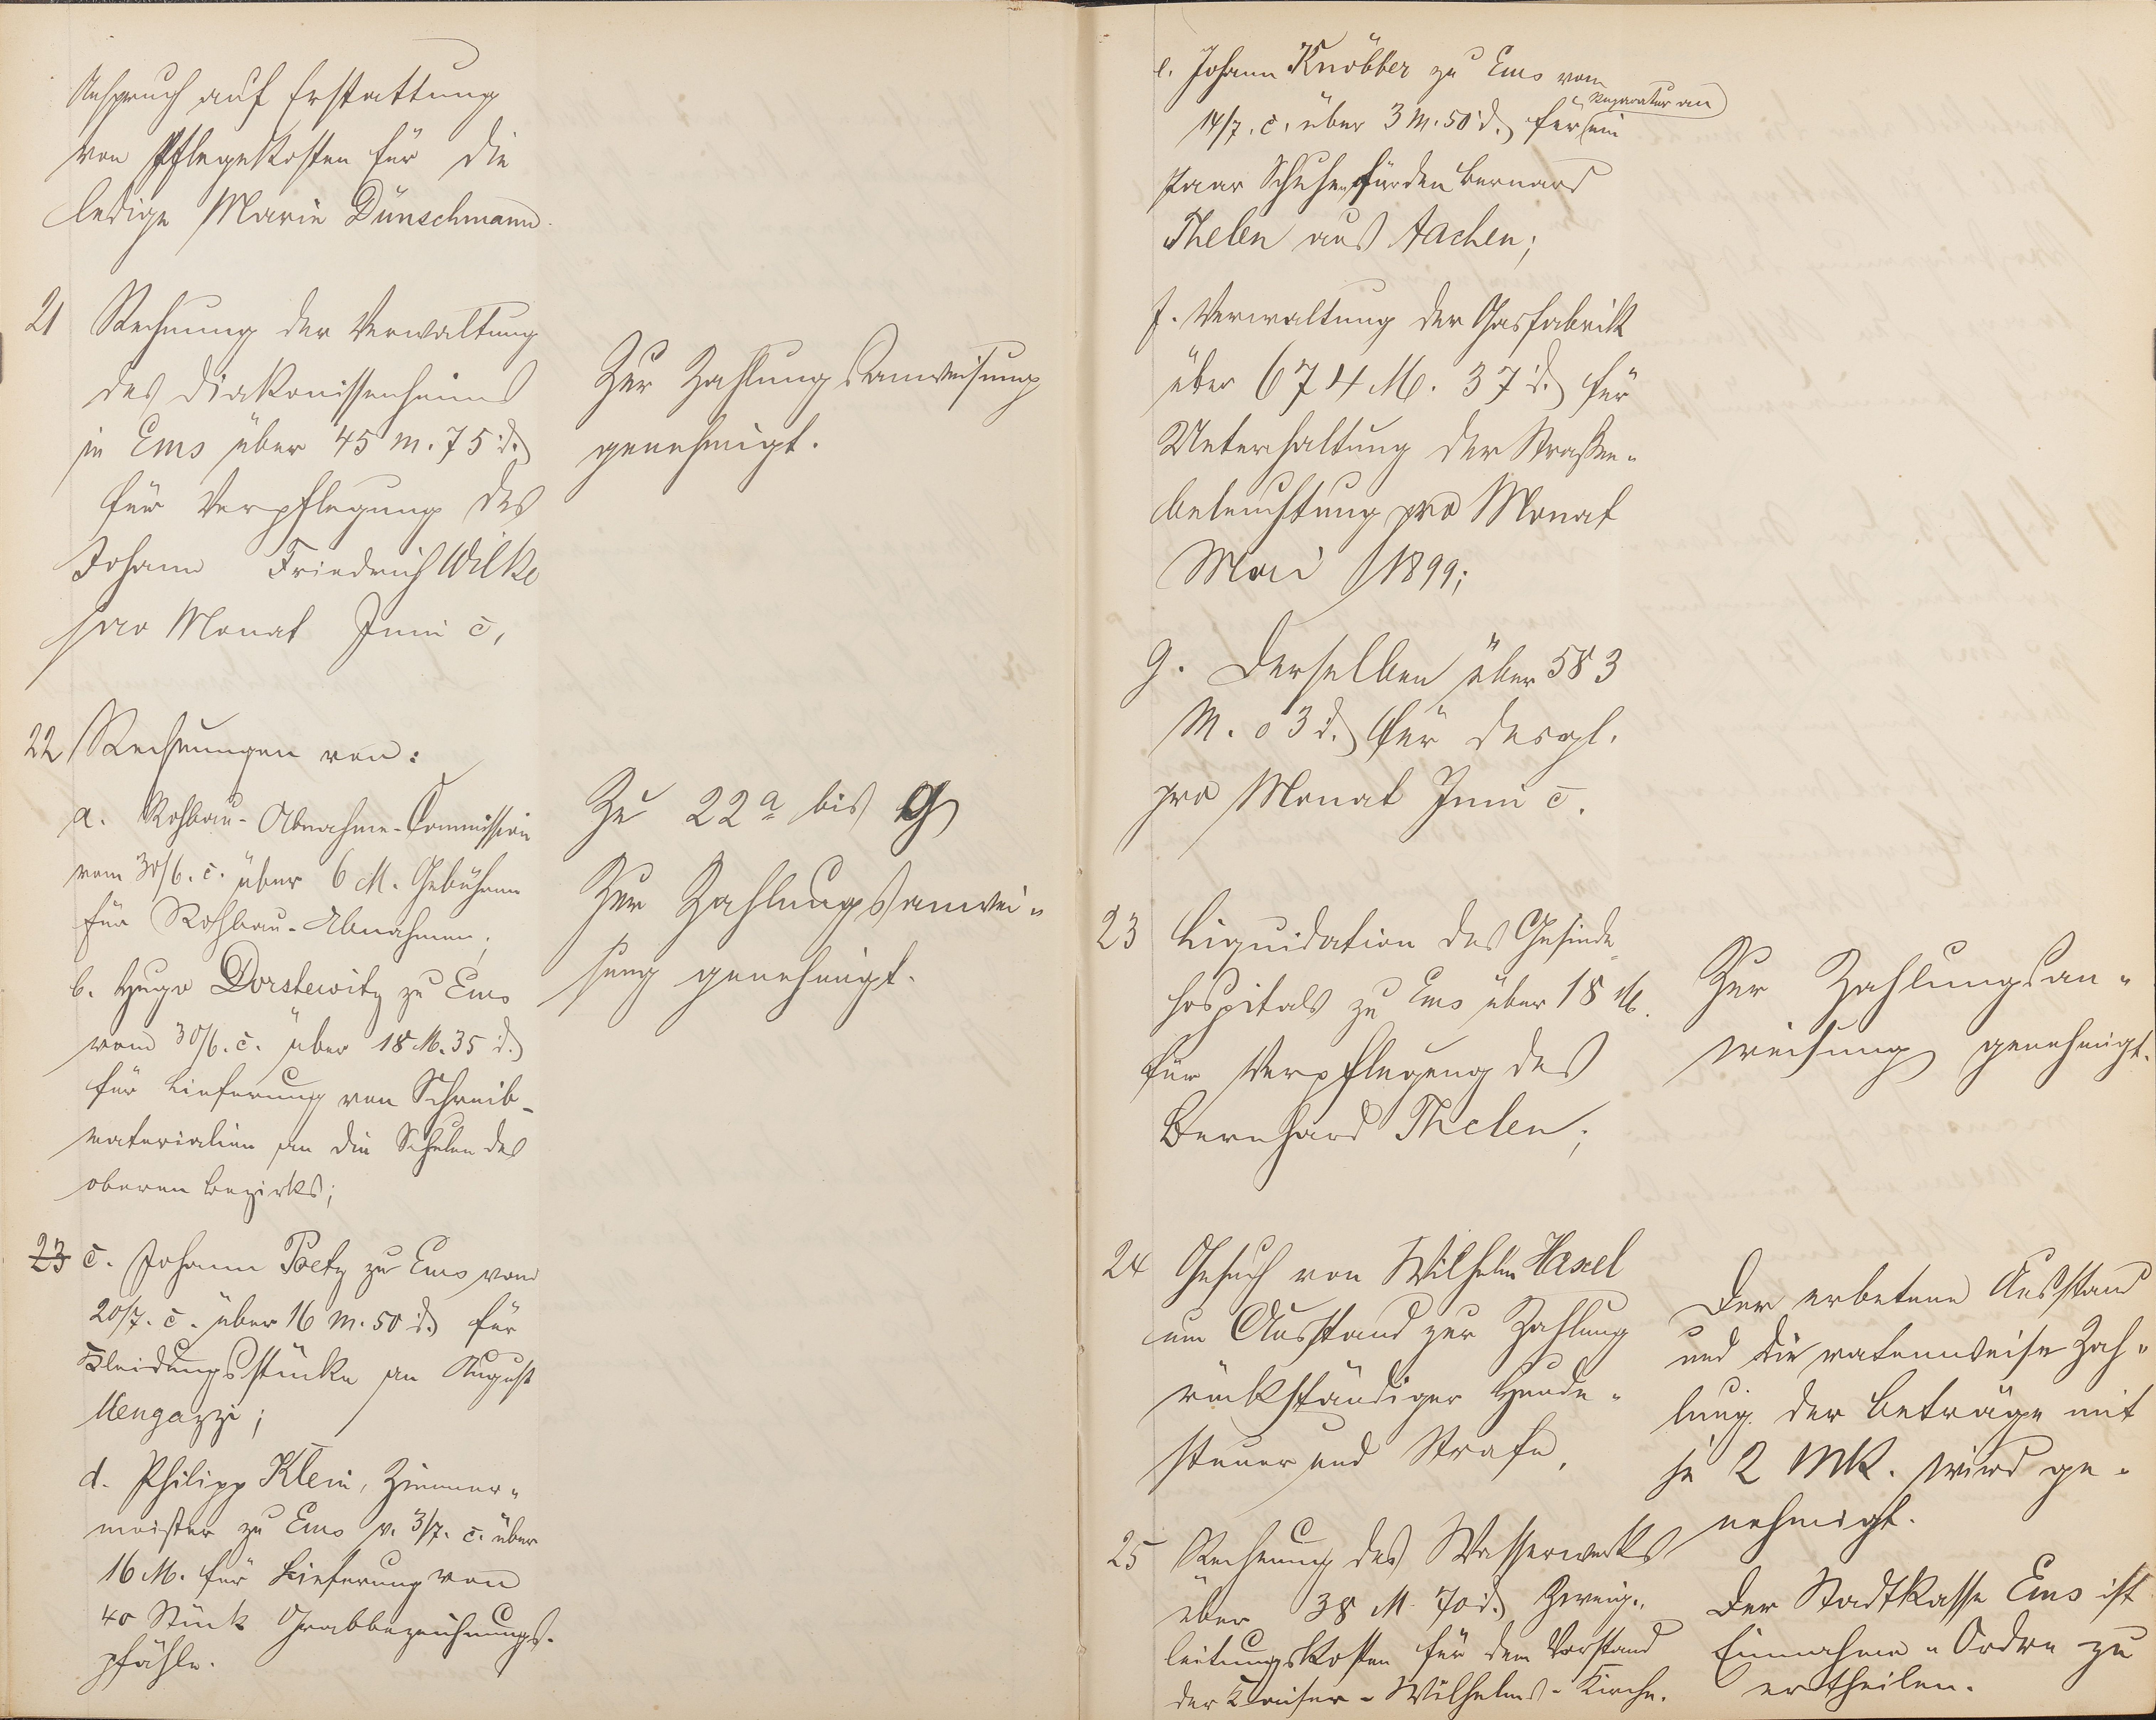 Anspruch auf Erstattung
von Pflegekosten für die
ledige Marie Dünschmann.
21 Rechnung der Verwaltung
des Diakonissenheims
in Ems über 45 M. 75 d.
für Verpflegung des
Johann Friedrich Wilke
pro Monat Juni c.
Zur Zahlungsanweisung
genehmigt.
22 Rechnungen von:
a. Rohbau-Abnahme-Commission
vom 30/6. c. über 6 M. Gebühren
für Rohbau-Abnahmen;
b. Hugo Dorstewitz zu Ems
vom 30/6. c. über 18 M. 35 d.
für Lieferung von Schreib-
materialien an die Schulen des
oberen Bezirks;
23 c. Johann Poetz zu Ems vom
20/7. c. über 16 M. 50 d. für
Kleidungsstücke an August
Mengazzi;
d. Philipp Klein, Zimmer-
meister zu Ems v. 3/7. c. über
16 M. für Lieferung von
40 Stück Grabbezeichnungs-
pfähle.
Zu 22 a bis g
Zur Zahlungsanwei-
sung genehmigt.
e. Johann Knöbber zu Ems vom
14/7. c. über 3 M. 50 d. für Reparatur an ein
Paar Schuhen für den Bernard
Thelen aus Aachen;
f. Verwaltung der Gasfabrik
über 674 M. 37 d. für
Unterhaltung der Straßen-
beleuchtung pro Monat
Mai 1899;
g. Derselben über 583
M. 03 d. für desgl.
pro Monat Juni c.
23 Liquidation des Gesinde-
hospitals zu Ems über 18 M.
für Verpflegung des
Bernhard Thelen;
Zur Zahlungsan-
weisung genehmigt.
24 Gesuch von Wilhelm Hasel
um Ausstand zur Zahlung
rückständiger Hunde-
steuer und Strafe.
Der erbetene Ausstand
und die ratenweise Zah-
lung der Beträge mit
je 2 Mk. wird ge-
nehmigt.
25 Rechnung des Wasserwerks
über 38 M. 70 d. Zweig-
leitungskosten für den Vorstand
der Kaiser-Wilhelms-Kirche.
Der Stadtkasse Ems ist
Einnahme-Ordre zu
ertheilen.